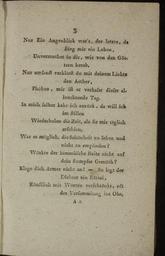 3
Nur Ein Augenblick war's, der letzte, da
stieg mir ein Leben,
Unvermuthet in dir, wie von den Göt-
tern herab.
Nur umsonst verklärst du mit deinem Lichte
den Aether,
Phöbus, mir ist er verhaßt dieser al-
leuchtende Tag.
In mich selber kehr' ich zurück; da will ich
im Stillen
Wiederholen die Zeit, als sie mir täglich
erschien.
War es möglich, die Schönheit zu sehen und
nicht zu empfinden?
Wirkte der himmlische Reiz nicht auf
dein stumpfes Gemüth?
Klage dich Armer nicht an! — So legt der
Dichter ein Räthsel,
Künstlich mit Worten verschränkt, oft
der Versammlung ins Ohr,
A 2